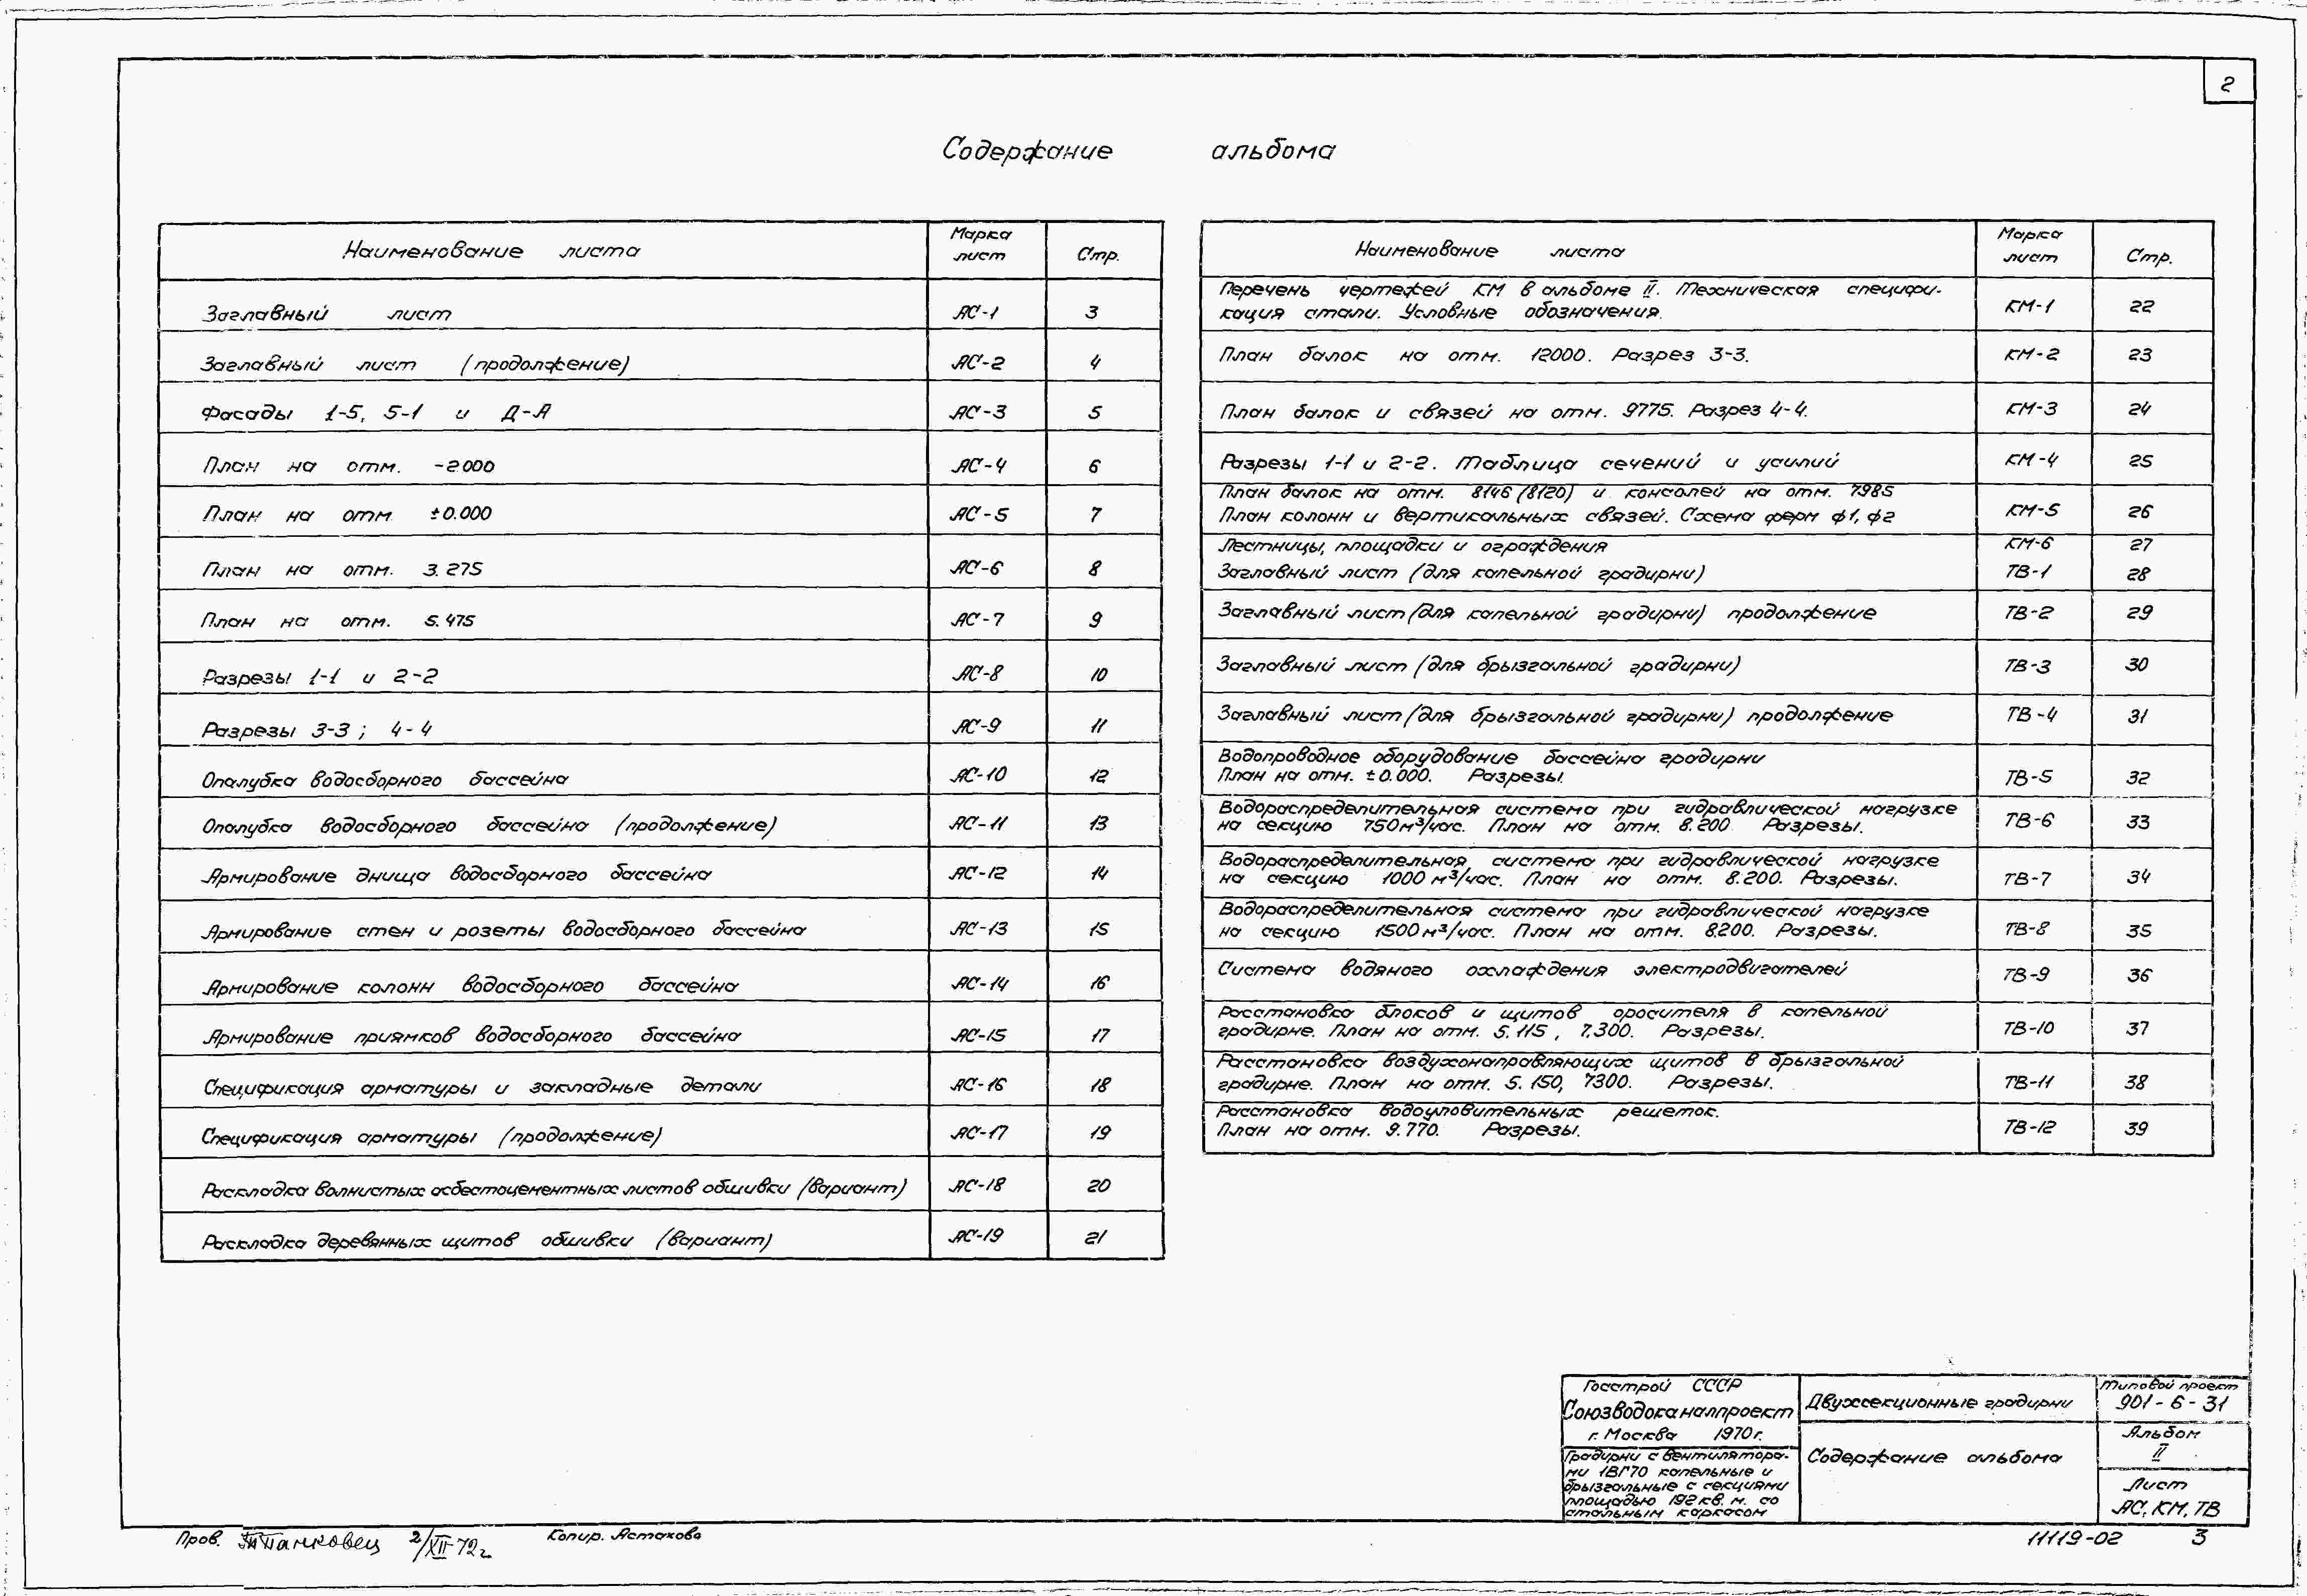 2
Содержание альбома
Наименование листа Марка лист Стр.
Заглавный лист АС-1 3
Заглавный лист (продолжение) АС-2 4
Фасады 1-5, 5-1 и Д-А АС-3 5
План на отм. -2.000 АС-4 6
План на отм ±0.000 АС-5 7
План на отм. 3.275 АС-6 8
План на отм. 5.475 АС-7 9
Разрезы 1-1 и 2-2 АС-8 10
Разрезы 3-3; 4-4 АС-9 11
Опалубка водосборного бассейна АС-10 12
Опалубка водосборного бассейна (продолжение) АС-11 13
Армирование днища водосборного бассейна АС-12 14
Армирование стен и розеты водосборного бассейна АС-13 15
Армирование колонн водосборного бассейна АС-14 16
Армирование приямков водосборного бассейна АС-15 17
Спецификация арматуры и закладные детали АС-16 18
Спецификация арматуры (продолжение) АС-17 19
Раскладка волнистых асбестоцементных листов обшивки (вариант) АС-18 20
Раскладка деревянных щитов обшивки (вариант) АС-19 21
Наименование листа Марка лист Стр.
Перечень чертежей КМ в альбоме II. Техническая специфи-
кация стали. Условные обозначения. КМ-1 22
План балок на отм. 12000. Разрез 3-3. КМ-2 23
План балок и связей на отм. 9775. Разрез 4-4. КМ-3 24
Разрезы 1-1 и 2-2. Таблица сечений и усилий КМ-4 25
План балок на отм. 8146 (8120) и консолей на отм. 7985
План колонн и вертикальных связей. Схема ферм ф1, ф2 КМ-5 26
Лестницы, площадки и ограждения КМ-6 27
Заглавный лист (для капельной градирни) ТВ-1 28
Заглавный лист (для капельной градирни) продолжение ТВ-2 29
Заглавный лист (для брызгальной градирни) ТВ-3 30
Заглавный лист (для брызгальной градирни) продолжение ТВ-4 31
Водопроводное оборудование бассейна градирни
План на отм. ±0.000. Разрезы. ТВ-5 32
Водораспределительная система при гидравлической нагрузке
на секцию 750м³/час. План на отм. 8.200 Разрезы. ТВ-6 33
Водораспределительная система при гидравлической нагрузке
на секцию 1000 м³/час. План на отм. 8.200. Разрезы. ТВ-7 34
Водораспределительная система при гидравлической нагрузке
на секцию 1500м³/час. План на отм. 8.200. Разрезы. ТВ-8 35
Система водяного охлаждения электродвигателей ТВ-9 36
Расстановка блоков и щитов оросителя в капельной
градирне. План на отм. 5.115, 7.300. Разрезы. ТВ-10 37
Расстановка воздухонаправляющих щитов в брызгальной
градирне. План на отм. 5.150, 7300. Разрезы. ТВ-11 38
Расстановка водоуловительных решеток.
План на отм. 9.770. Разрезы. ТВ-12 39
Госстрой СССР
Союзводоканалпроект
г. Москва 1970г.
Градирни с вентилятора-
ми 1ВГ70 капельные и
брызгальные с секциями
площадью 192 кв. м. со
стальным каркасом
Двухсекционные градирни
Содержание альбома
Типовой проект
901-6-31
Альбом
II
Лист
АС, КМ, ТВ
Пров. Панковец 2/XII-72г Копир. Астахова
11119-02 3